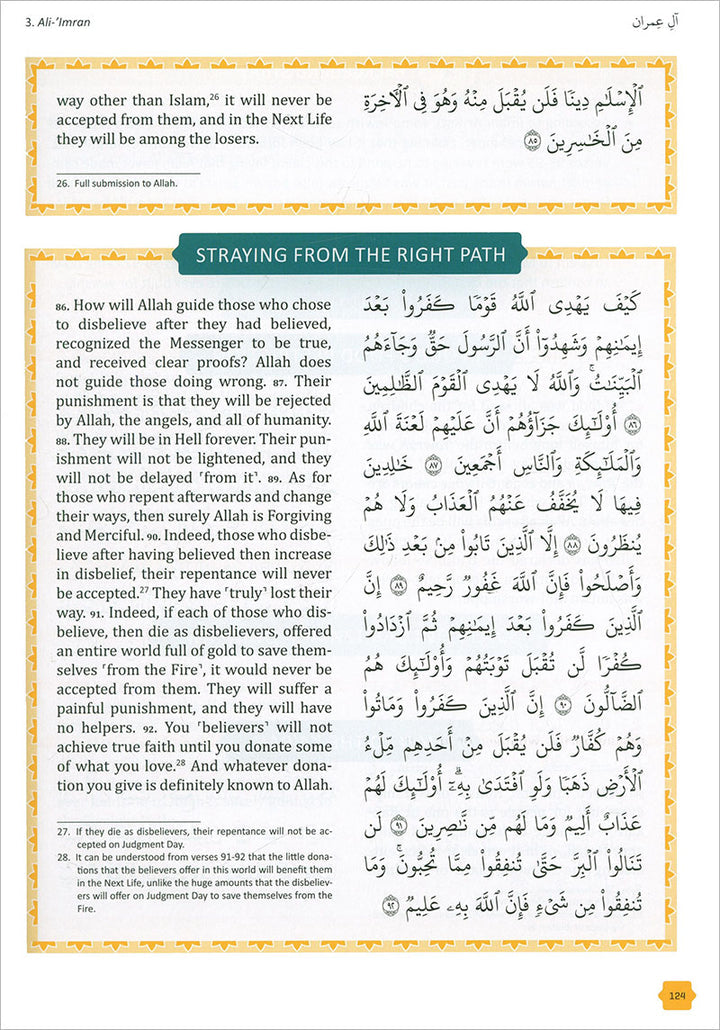 3. Ali-'Imran
آلِ عِمران
way other than Islam,²⁶ it will never be
accepted from them, and in the Next Life
they will be among the losers.
26. Full submission to Allah.
ٱلۡإِسۡلَٰمِ دِينٗا فَلَن يُقۡبَلَ مِنۡهُ وَهُوَ فِي ٱلۡأٓخِرَةِ
مِنَ ٱلۡخَٰسِرِينَ ٨٥
STRAYING FROM THE RIGHT PATH
86. How will Allah guide those who chose
to disbelieve after they had believed,
recognized the Messenger to be true,
and received clear proofs? Allah does
not guide those doing wrong. 87. Their
punishment is that they will be rejected
by Allah, the angels, and all of humanity.
88. They will be in Hell forever. Their pun-
ishment will not be lightened, and they
will not be delayed ˹from it˺. 89. As for
those who repent afterwards and change
their ways, then surely Allah is Forgiving
and Merciful. 90. Indeed, those who disbe-
lieve after having believed then increase
in disbelief, their repentance will never
be accepted.²⁷ They have ˹truly˺ lost their
way. 91. Indeed, if each of those who dis-
believe, then die as disbelievers, offered
an entire world full of gold to save them-
selves ˹from the Fire˺, it would never be
accepted from them. They will suffer a
painful punishment, and they will have
no helpers. 92. You ˹believers˺ will not
achieve true faith until you donate some
of what you love.²⁸ And whatever dona-
tion you give is definitely known to Allah.
27. If they die as disbelievers, their repentance will not be ac-
cepted on Judgment Day.
28. It can be understood from verses 91-92 that the little dona-
tions that the believers offer in this world will benefit them
in the Next Life, unlike the huge amounts that the disbeliev-
ers will offer on Judgment Day to save themselves from the
Fire.
كَيۡفَ يَهۡدِي ٱللَّهُ قَوۡمٗا كَفَرُواْ بَعۡدَ
إِيمَٰنِهِمۡ وَشَهِدُوٓاْ أَنَّ ٱلرَّسُولَ حَقّٞ وَجَآءَهُمُ
ٱلۡبَيِّنَٰتُۚ وَٱللَّهُ لَا يَهۡدِي ٱلۡقَوۡمَ ٱلظَّٰلِمِينَ
٨٦ أُوْلَٰٓئِكَ جَزَآؤُهُمۡ أَنَّ عَلَيۡهِمۡ لَعۡنَةَ ٱللَّهِ
وَٱلۡمَلَٰٓئِكَةِ وَٱلنَّاسِ أَجۡمَعِينَ ٨٧ خَٰلِدِينَ
فِيهَا لَا يُخَفَّفُ عَنۡهُمُ ٱلۡعَذَابُ وَلَا هُمۡ
يُنظَرُونَ ٨٨ إِلَّا ٱلَّذِينَ تَابُواْ مِنۢ بَعۡدِ ذَٰلِكَ
وَأَصۡلَحُواْ فَإِنَّ ٱللَّهَ غَفُورٞ رَّحِيمٌ ٨٩ إِنَّ
ٱلَّذِينَ كَفَرُواْ بَعۡدَ إِيمَٰنِهِمۡ ثُمَّ ٱزۡدَادُواْ
كُفۡرٗا لَّن تُقۡبَلَ تَوۡبَتُهُمۡ وَأُوْلَٰٓئِكَ هُمُ
ٱلضَّآلُّونَ ٩٠ إِنَّ ٱلَّذِينَ كَفَرُواْ وَمَاتُواْ
وَهُمۡ كُفَّارٞ فَلَن يُقۡبَلَ مِنۡ أَحَدِهِم مِّلۡءُ
ٱلۡأَرۡضِ ذَهَبٗا وَلَوِ ٱفۡتَدَىٰ بِهِۦٓۗ أُوْلَٰٓئِكَ لَهُمۡ
عَذَابٌ أَلِيمٞ وَمَا لَهُم مِّن نَّٰصِرِينَ ٩١ لَن
تَنَالُواْ ٱلۡبِرَّ حَتَّىٰ تُنفِقُواْ مِمَّا تُحِبُّونَۚ وَمَا
تُنفِقُواْ مِن شَيۡءٖ فَإِنَّ ٱللَّهَ بِهِۦ عَلِيمٞ ٩٢
124